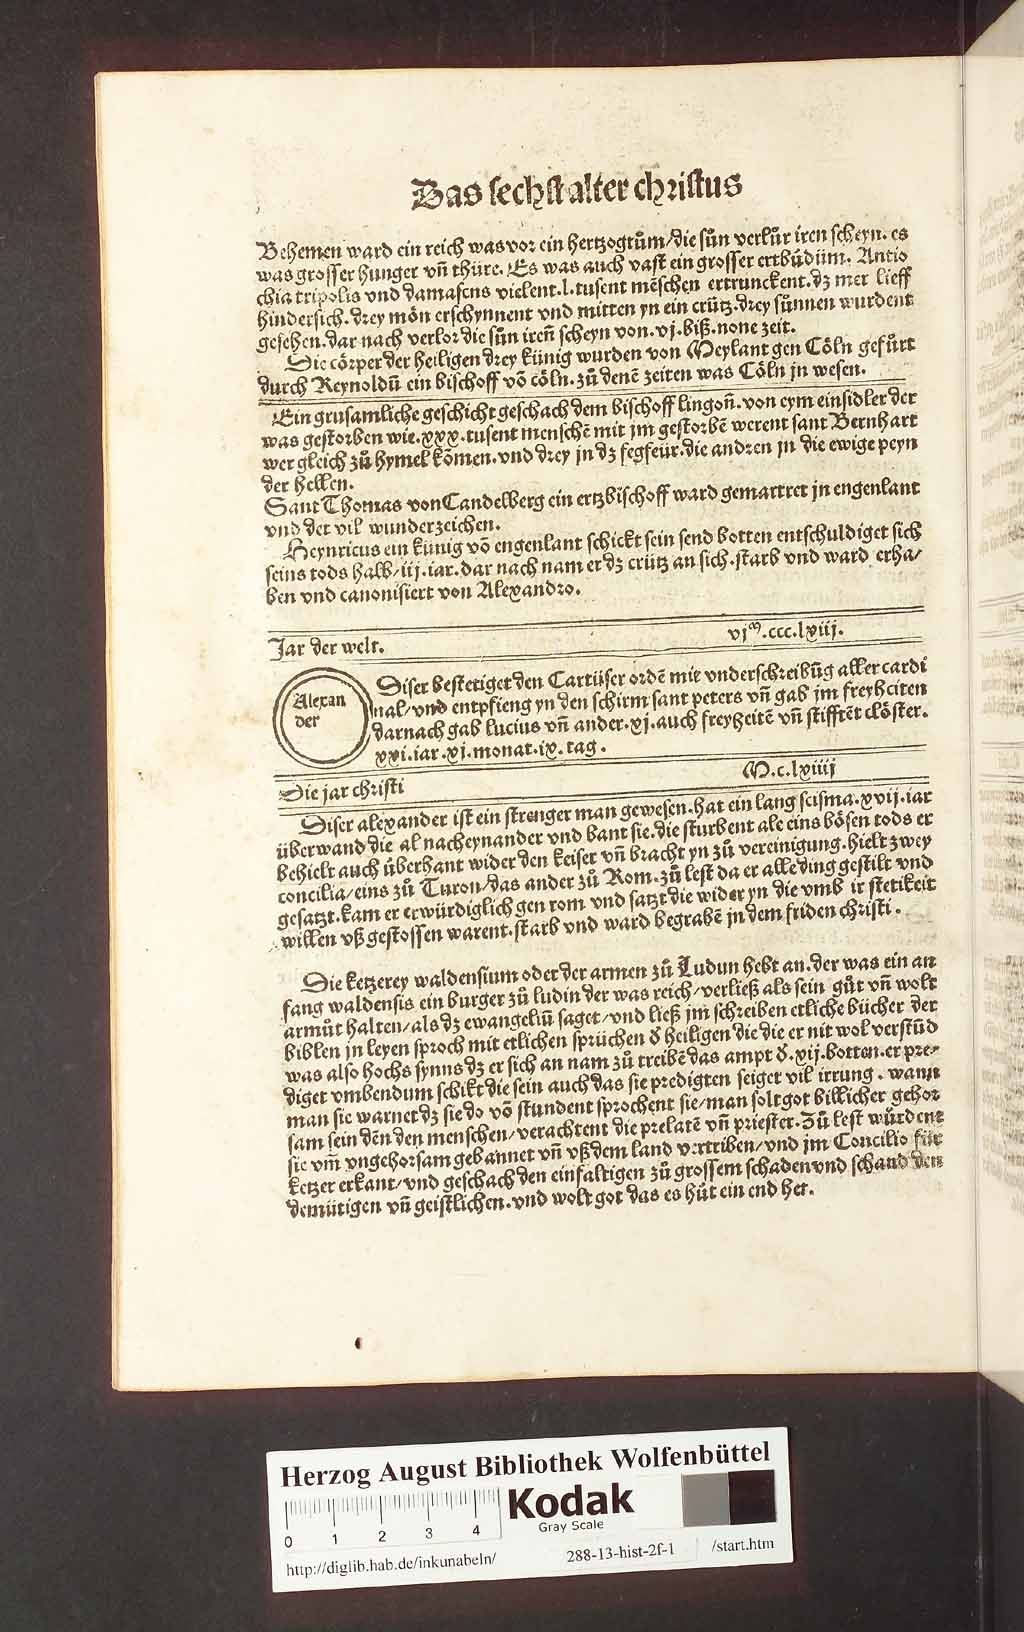 Das sechst alter christus
Behemen ward ein reich was vor ein hertzogtům/die sůn verlůr iren scheyn. es
was grosser hunger vñ thüre. Es was auch vast ein grosser ertbüdüm. Antio
chia tripolis vnd damascns vielent.l.tusent mēschen ertrunckent.dz mer lieff
hindersich.drey môn erschynnent vnd mitten yn ein crütz.drey sůnnen wurdent
gesehen.dar nach verlor die sůn ireñ scheyn von.vj.biß.none zeit.
Die cörper der heiligen drey künig wurden von Meylant gen Cöln gefürt
durch Reynoldū ein bischoff võ cöln.zů denē zeiten was Cöln jn wesen.
Ein grusamliche geschicht geschach dem bischoff lingoñ.von eym einsidler der
was gestorben wie.xxx.tusent menschē mit jm gestorbē werent sant Bernhart
wer gleich zů hymel kōmen.vnd drey jn dz fegfeür.die andren jn die ewige peyn
der hellen.
Sant Thomas von Candelberg ein ertzbischoff ward gemartret jn engenlant
vnd det vil wunderzeichen.
Heynricus ein künig võ engenlant schickt sein send botten entschuldiget sich
seins tods halb/iij.iar.dar nach nam er dz crütz an sich.starb vnd ward erha/
ben vnd canonisiert von Alexandro.
Jar der welt. vjᵐ.ccc.lxiij.
Alexan
der
Diser bestetiget den Cartüser ordē mit vnderschreibūg aller cardi
nal/vnd entpfieng yn den schirm sant peters vñ gab jm freyheiten
darnach gab lucius vñ ander.xj.auch freyheitē vñ stifftēt clöster.
xxi.iar.xj.monat.ix.tag.
Die jar christi M.c.lxiiij
Diser alexander ist ein strenger man gewesen.hat ein lang scisma.xvij.iar
überwand die al nacheynander vnd bant sie.die sturbent ale eins bösen tods er
behielt auch überhant wider den keiser vñ bracht yn zů vereinigung.hielt zwey
concilia/eins zů Turon/das ander zů Rom.zů lest da er alle ding gestilt vnd
gesatzt.kam er erwürdiglich gen rom vnd satzt die wider yn die vmb ir stetikeit
willen vß gestossen warent.starb vnd ward begrabē jn dem friden christi.
Die ketzerey waldensium oder der armen zů Ludun hebt an.der was ein an
fang waldensis ein burger zů ludin der was reich/verließ als sein gůt vñ wolt
armůt halten/als dz ewangeliū saget/vnd ließ jm schreiben etliche bücher der
biblen jn leyen sproch mit etlichen sprüchen ð heiligen die die er nit wol verstůd
was also hochs synns dz er sich an nam zů treibē das ampt ð.xij.botten.er pre/
diget vmbendum schikt die sein auch das sie predigten seiget vil irrung. wann
man sie warnet dz sie do võ stundent sprochent sie/man solt got billicher gehor
sam sein dēn den menschen/verachtent die prelatē vñ priester.Zů lest würdent
sie vm̃ vngehorsam gebannet vñ vß dem land vertriben/vnd jm Concilio für
ketzer erkant/vnd geschach den einfaltigen zů grossem schaden vnd schand den
demütigen vñ geistlichen.vnd wolt got das es hüt ein end het.
Herzog August Bibliothek Wolfenbüttel
Kodak
Gray Scale
0 1 2 3 4
http://diglib.hab.de/inkunabeln/ 288-13-hist-2f-1 /start.htm